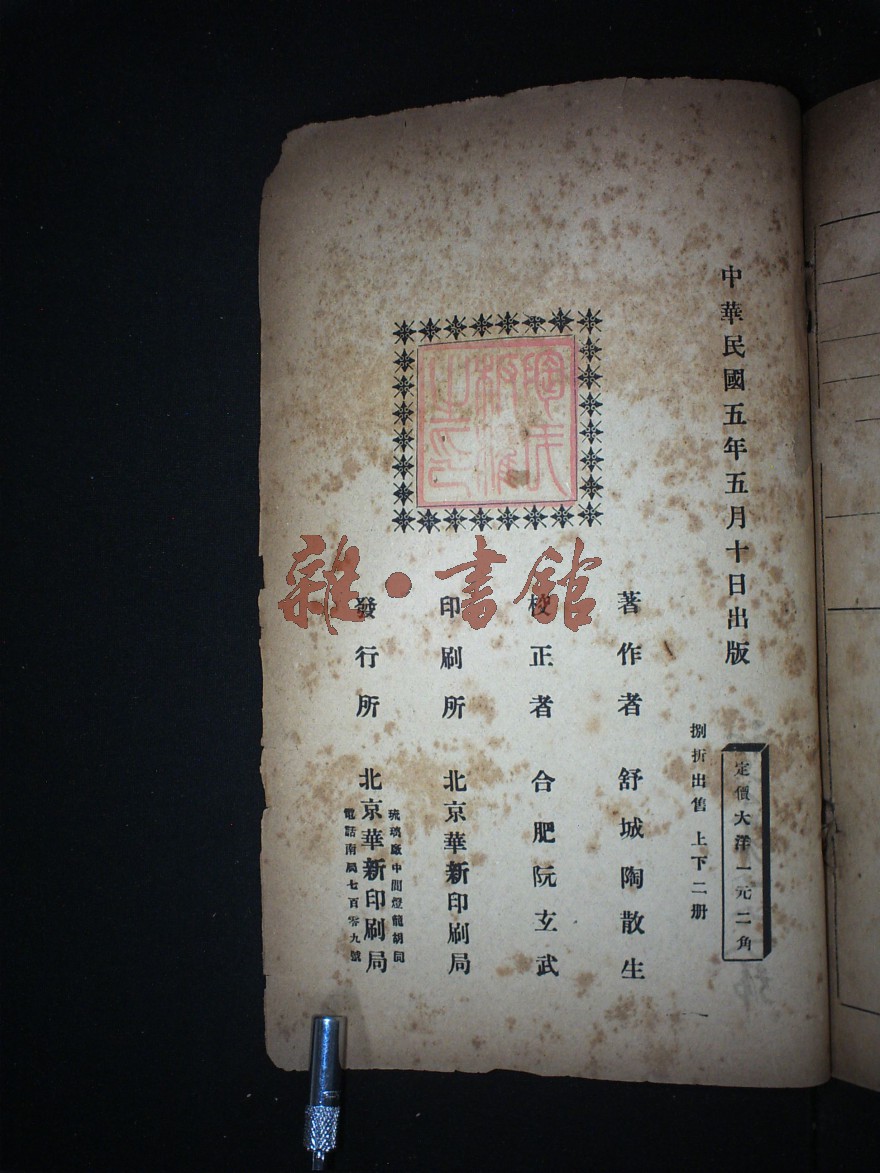 中華民國五年五月十日出版
定價大洋一元二角
捌折出售 上下二册
著作者 舒城陶散生
校正者 合肥阮玄武
印刷所 北京華新印刷局
發行所 北京華新印刷局
琉璃廠中間燈龍胡同
電話南局七百零九號
陶氏
版權
之印
雜·書館